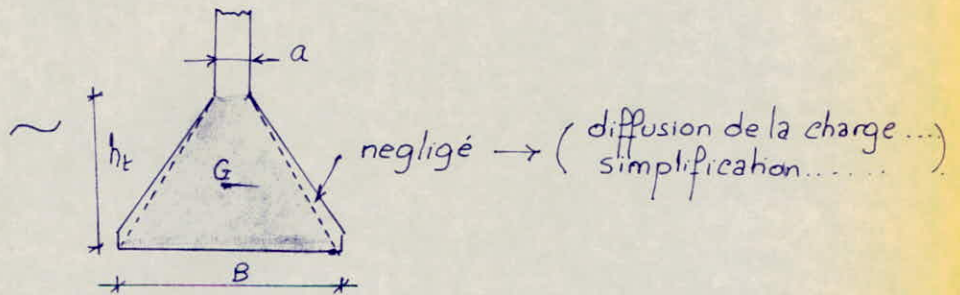 a
~
ht
G
negligé → ( diffusion de la charge...
simplification...... )
B